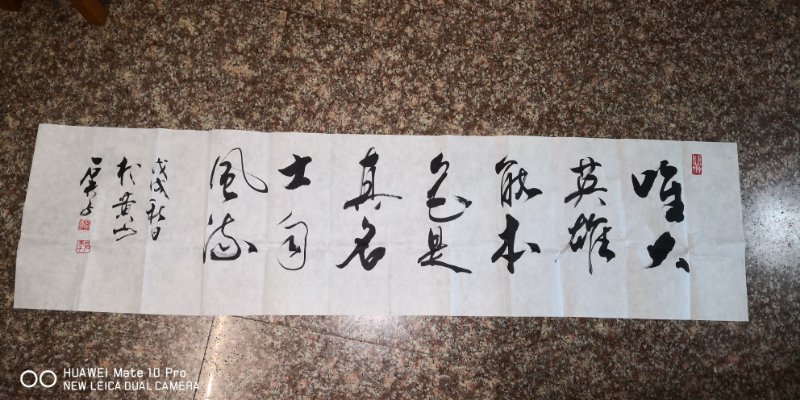 唯大
英雄
能本
色是
真名
士自
风流
戊戌秋日
于黄山
HUAWEI Mate 10 Pro
NEW LEICA DUAL CAMERA